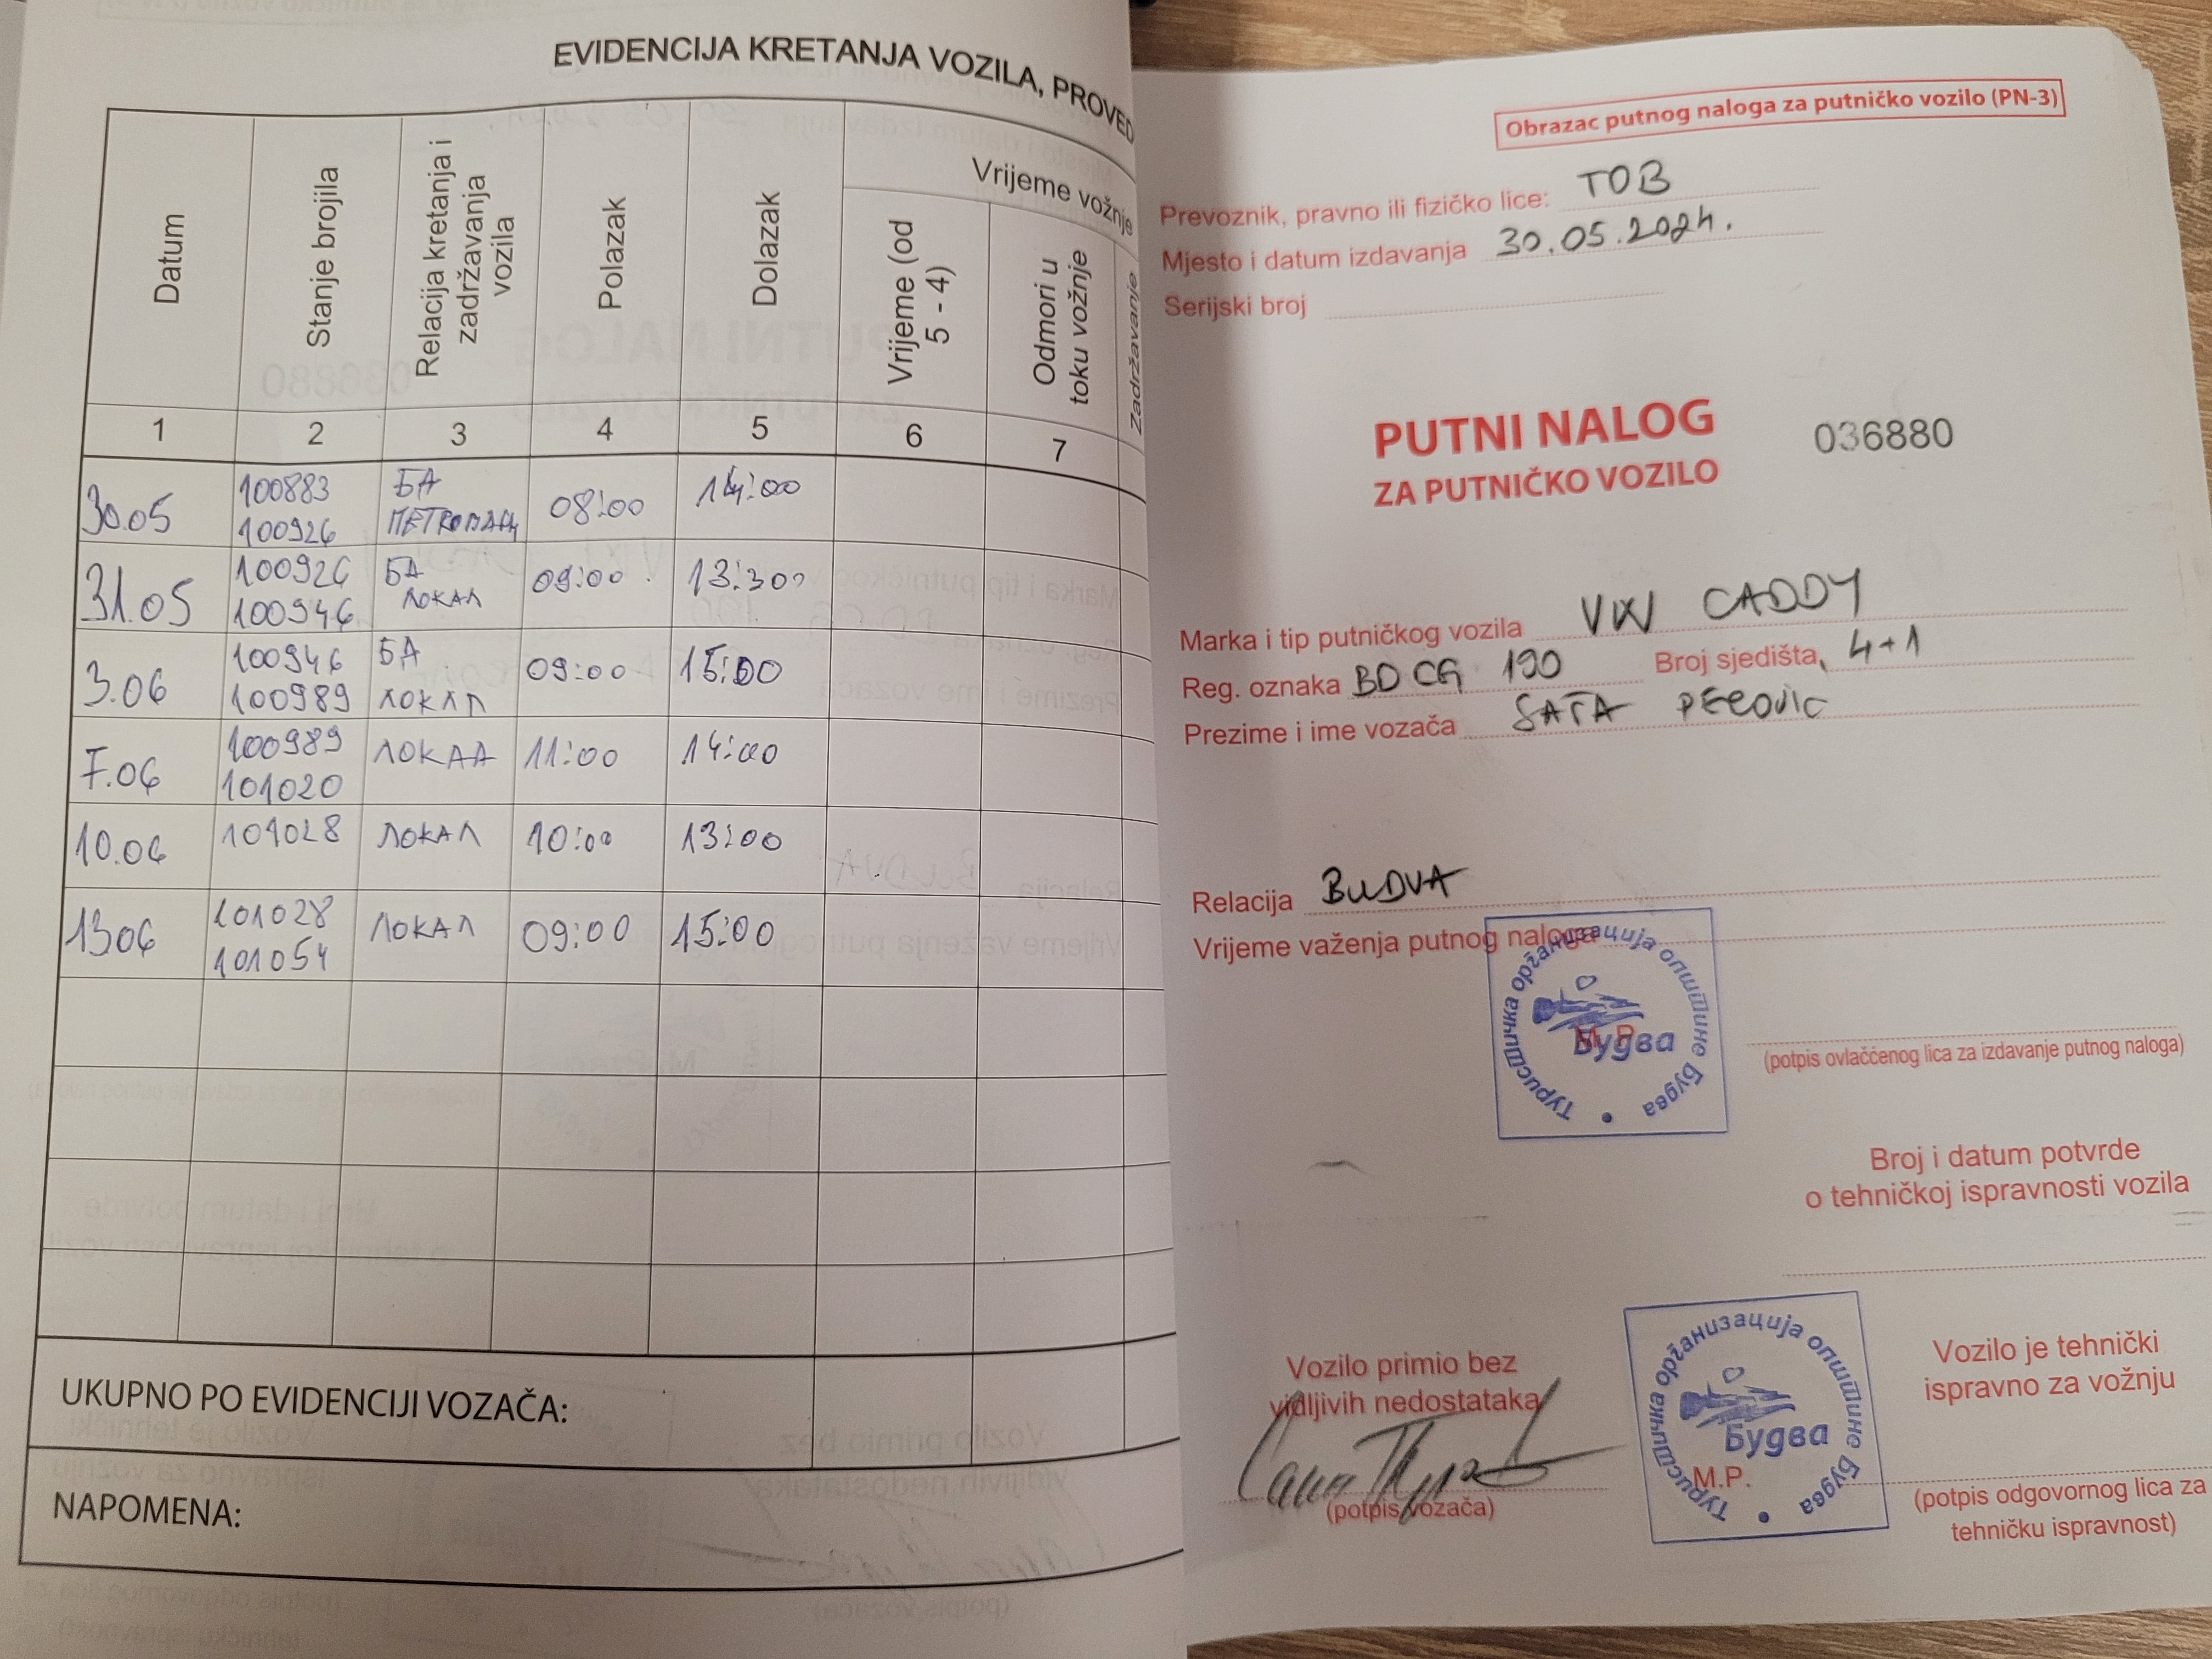 EVIDENCIJA KRETANJA VOZILA, PROVED
Datum
Stanje brojila
Relacija kretanja i
zadržavanja
vozila
Polazak
Dolazak
Vrijeme vožnje
Vrijeme (od
5 - 4)
Odmori u
toku vožnje
Zadržavanje
1 2 3 4 5 6 7
30.05 100883 БА 08:00 14:00
100926 ПЕТРОВАЦ
31.05 100926 БА 09:00 13:300
100946 ЛОКАЛ
3.06 100946 БА 09:00 15:00
100989 ЛОКАЛ
7.06 100989 ЛОКАЛ 11:00 14:00
101020
10.06 101028 ЛОКАЛ 10:00 13:00
1306 101028 ЛОКАЛ 09:00 15:00
101054
UKUPNO PO EVIDENCIJI VOZAČA:
NAPOMENA:
Obrazac putnog naloga za putničko vozilo (PN-3)
Prevoznik, pravno ili fizičko lice: TOB
Mjesto i datum izdavanja 30.05.2024.
Serijski broj
PUTNI NALOG 036880
ZA PUTNIČKO VOZILO
Marka i tip putničkog vozila VW CADDY
Reg. oznaka BD CG 190 Broj sjedišta, 4+1
Prezime i ime vozača SAŠA
Relacija BUDVA
Vrijeme važenja putnog naloga
Туристичка организација општине Будва
Будва
M.P.
(potpis ovlaććenog lica za izdavanje putnog naloga)
Broj i datum potvrde
o tehničkoj ispravnosti vozila
Vozilo primio bez
vidljivih nedostataka
(potpis vozača)
Туристичка организација општине Будва
Будва
M.P.
Vozilo je tehnički
ispravno za vožnju
(potpis odgovornog lica za
tehničku ispravnost)